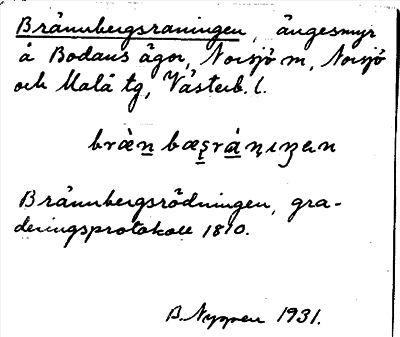 Brännbergsraningen, ängesmyr
å Bodans ägor, Norsjö m, Norsjö
och Malå tg, Västerb. l.
brä̀n bæʂrániŋen
Brännbergsrödningen, gra-
deringsprotokoll 1810.
B. Nygren 1931.